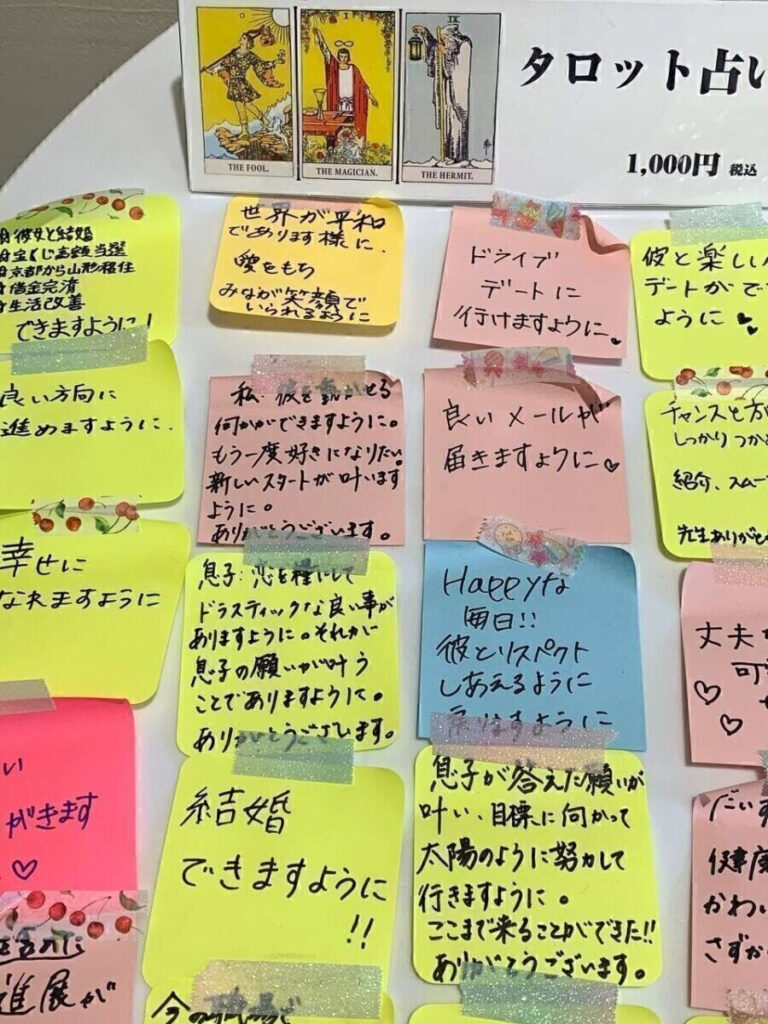 THE FOOL.
THE MAGICIAN.
IX
THE HERMIT.
タロット占い
1,000円 税込
彼女と結婚
宝くじ高額当選
京都から山形移住
借金完済
生活改善
できますように!
世界が平和
であります様に.
愛をもち
みなが笑顔で
いられるように
ドライブ
デートに
行けますように
彼と楽しい
デートがで
ように
良い方向に
進めますように.
私.彼を動かせる
何かができますように。
もう一度好きになりたい。
新しいスタートが叶います
ように。
ありがとうございます。
良いメールが
届きますように♡
チャンスを
しっかりつか
紹介、スムー
先生ありがと
幸せに
なれますように
息子:
ドラスティックな良い事が
ありますように。それが
息子の願いが叶う
ことでありますように。
ありがとうございます。
Happyな
毎日!!
彼とリスペクト
しあえるように
ますように
丈夫
可
い
がきます
♡
結婚
できますように
!!
息子が答えた願いが
叶い、目標に向かって
太陽のように努力して
行きますように。
ここまで来ることができた!!
ありがとうございます。
だいす
健康
かわい
さずか
進展が
今の